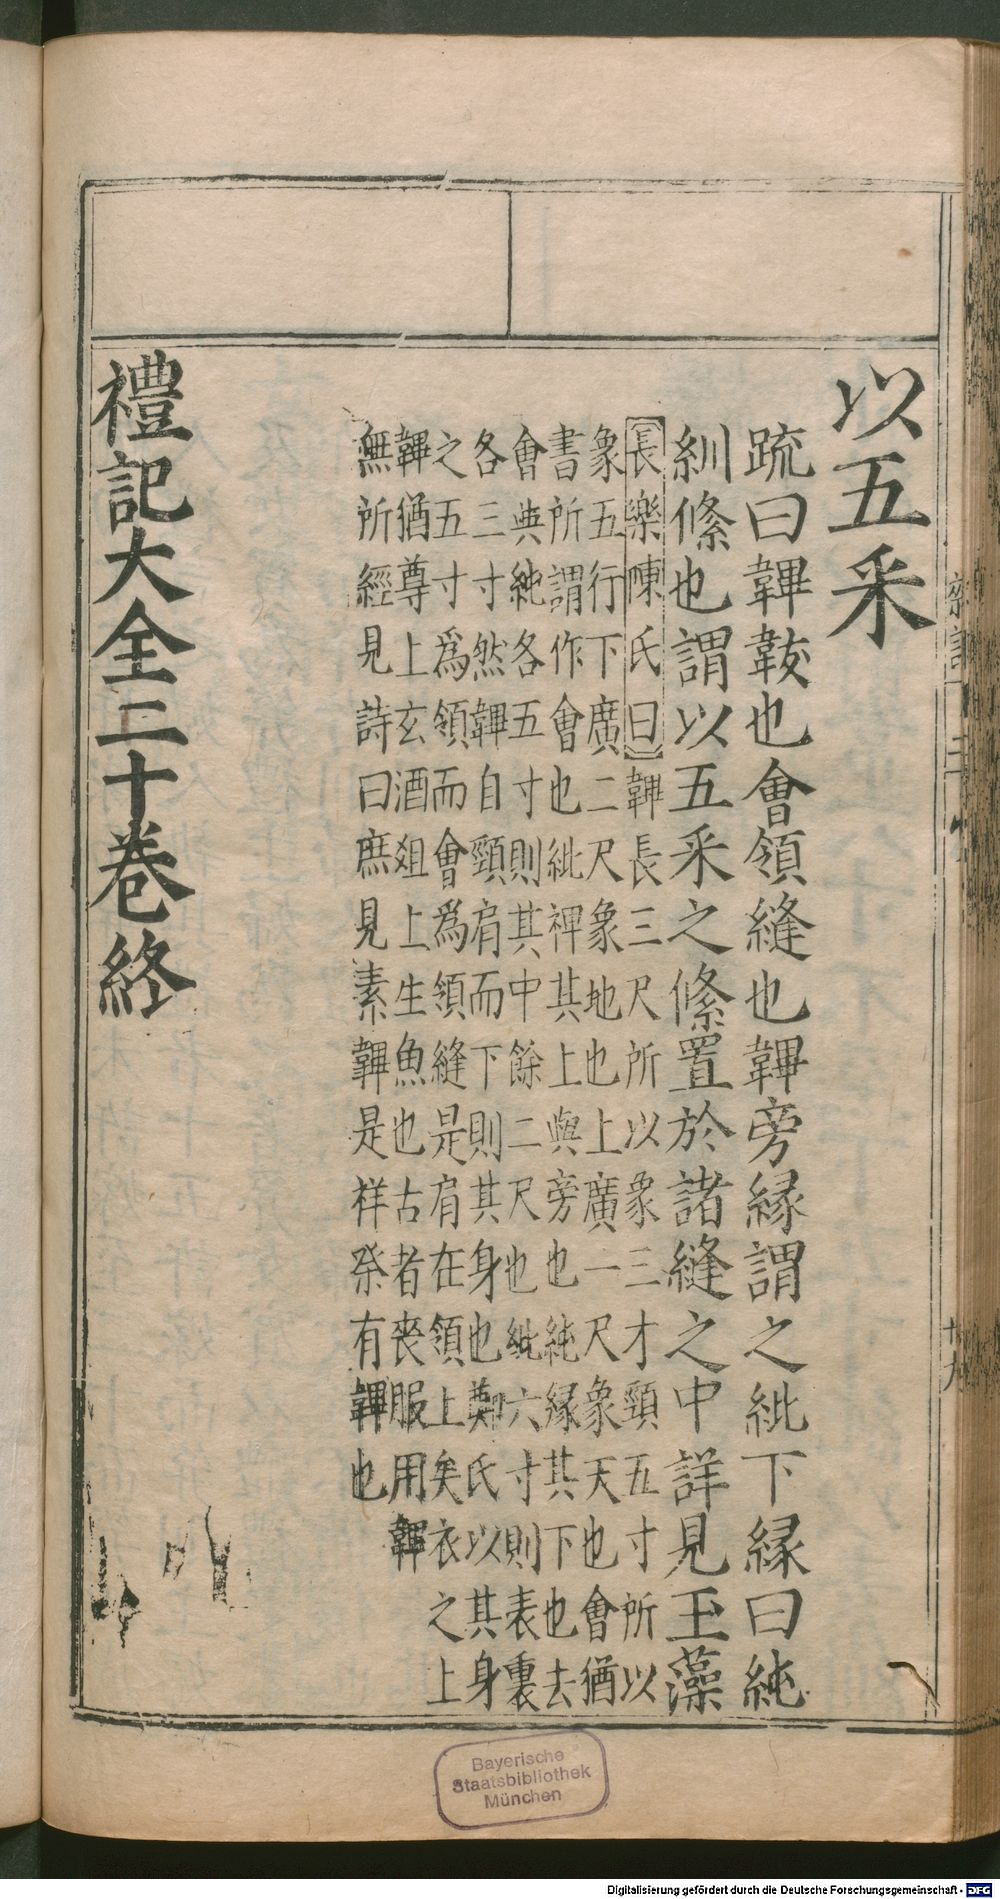 以五采
疏曰韠韍也會領縫也韠旁縁謂之紕下縁曰純
紃絛也謂以五采之絛置於諸縫之中詳見玉藻
長樂陳氏曰韠長三尺所以象三才頸五寸所以
象五行下廣二尺象地也上廣一尺象天也會猶
書所謂作會也紕裨其上與旁也純縁其下也去
會與純各五寸則其中餘二尺也紕六寸則表裏
各三寸然韠自頸肩而下則其身也鄭氏以其身
之五寸爲領而會爲領縫是肩在領上矣衣之上
韠猶尊上玄酒俎上生魚也古者喪服用韠
無所經見詩曰庶見素韠是祥祭有韠也
禮記大全二十卷終
Bayerische
Staatsbibliothek
München
Digitalisierung gefördert durch die Deutsche Forschungsgemeinschaft - DFG